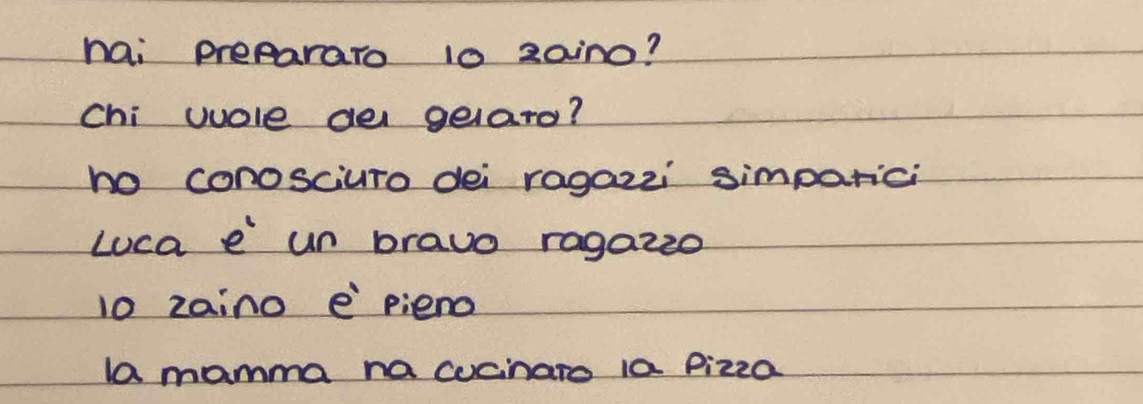 hai preparato lo zaino?
Chi vuole del gelato?
ho conosciuto dei ragazzi simpatici
Luca è un bravo ragazzo
lo zaino è pieno
la mamma ha cucinato la pizza